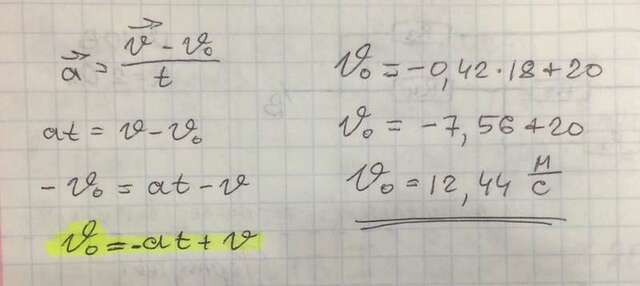 a⃗ = (v⃗ - v₀)/t
at = v - v₀
- v₀ = at - v
v₀ = -at + v
v₀ = -0,42 · 18 + 20
v₀ = -7,56 + 20
v₀ = 12,44 м/с